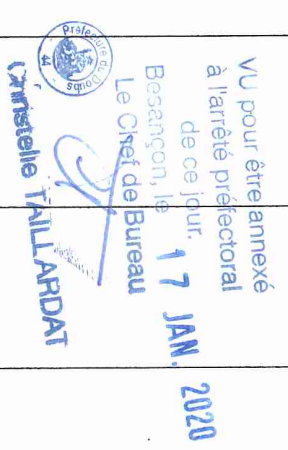 VU pour être annexé
à l'arrêté préfectoral
de ce jour.
Besançon, le 17 JAN. 2020
Le Chef de Bureau
Christelle TAILLARDAT
Préfecture du Doubs
41